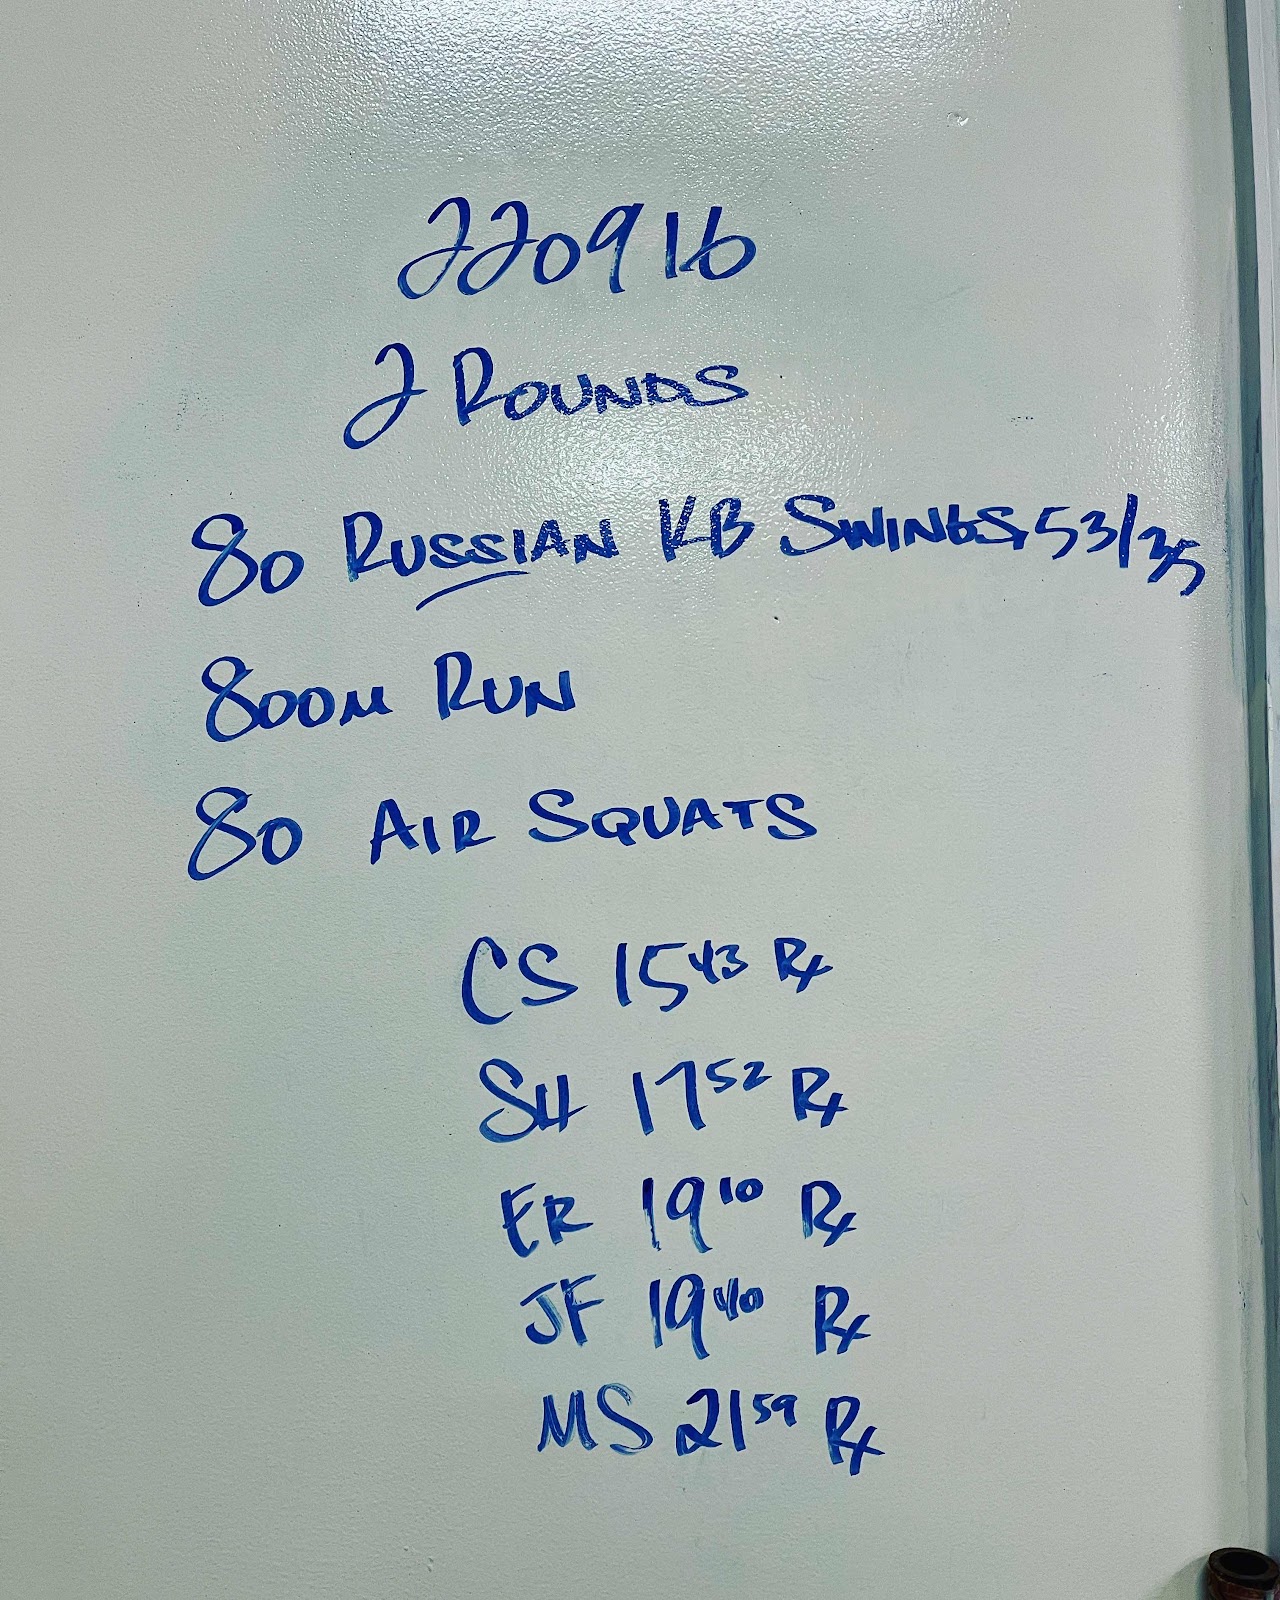 220916
2 ROUNDS
80 RUSSIAN KB SWINGS, 53/35
800M RUN
80 AIR SQUATS
CS 15 43 Rx
SH 17 52 Rx
ER 19 10 Rx
JF 19 40 Rx
MS 21 59 Rx